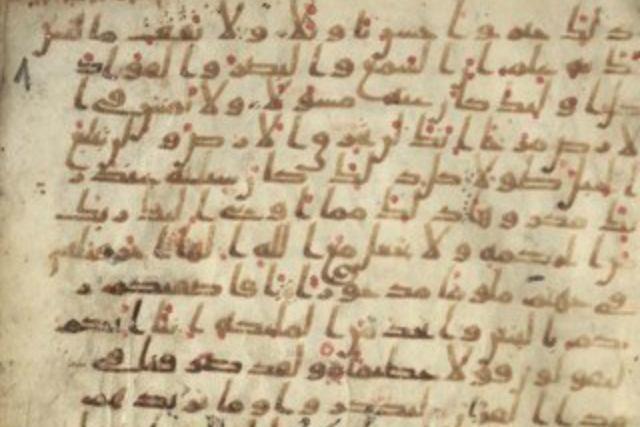 ذلك خير و احسن تاويلا ولا تقف ما ليس
لك به علم ان السمع و البصر و الفواد
كل اولئك كان عنه مسولا ولا تمش في ا
لارض مرحا انك لن تخرق الارض ولن تبلغ
الجبال طولا كل ذلك كان سيئه عند ر
ذلك مما اوحى اليك ربك
من الحكمه ولا تجعل مع الله الها اخر فتلقى
في جهنم ملوما مدحورا افاصفيكم ر
بكم بالبنين و اتخذ من الملئكه انثا انكم
لتقولون قولا عظيما ولقد صرفنا في
هذا القران ليذكروا وما يزيدهم